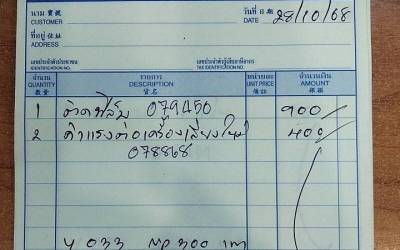 นาม 寶號
CUSTOMER
วันที่ 日期
DATE 28/10/68
ที่อยู่ 住址
ADDRESS
เลขประจำตัวประชาชน
IDENTIFICATION NO.
เลขประจำตัวผู้เสียภาษีอากร
TAX IDENTIFICATION NO.
จำนวน
QUANTITY
數量
รายการ
DESCRIPTION
貨名
หน่วยละ
UNIT PRICE
價訂
จำนวนเงิน
AMOUNT
銀額
1 079450 900
2 ค่าแรงต่อเครื่องเสียงใหม่ 400
078868